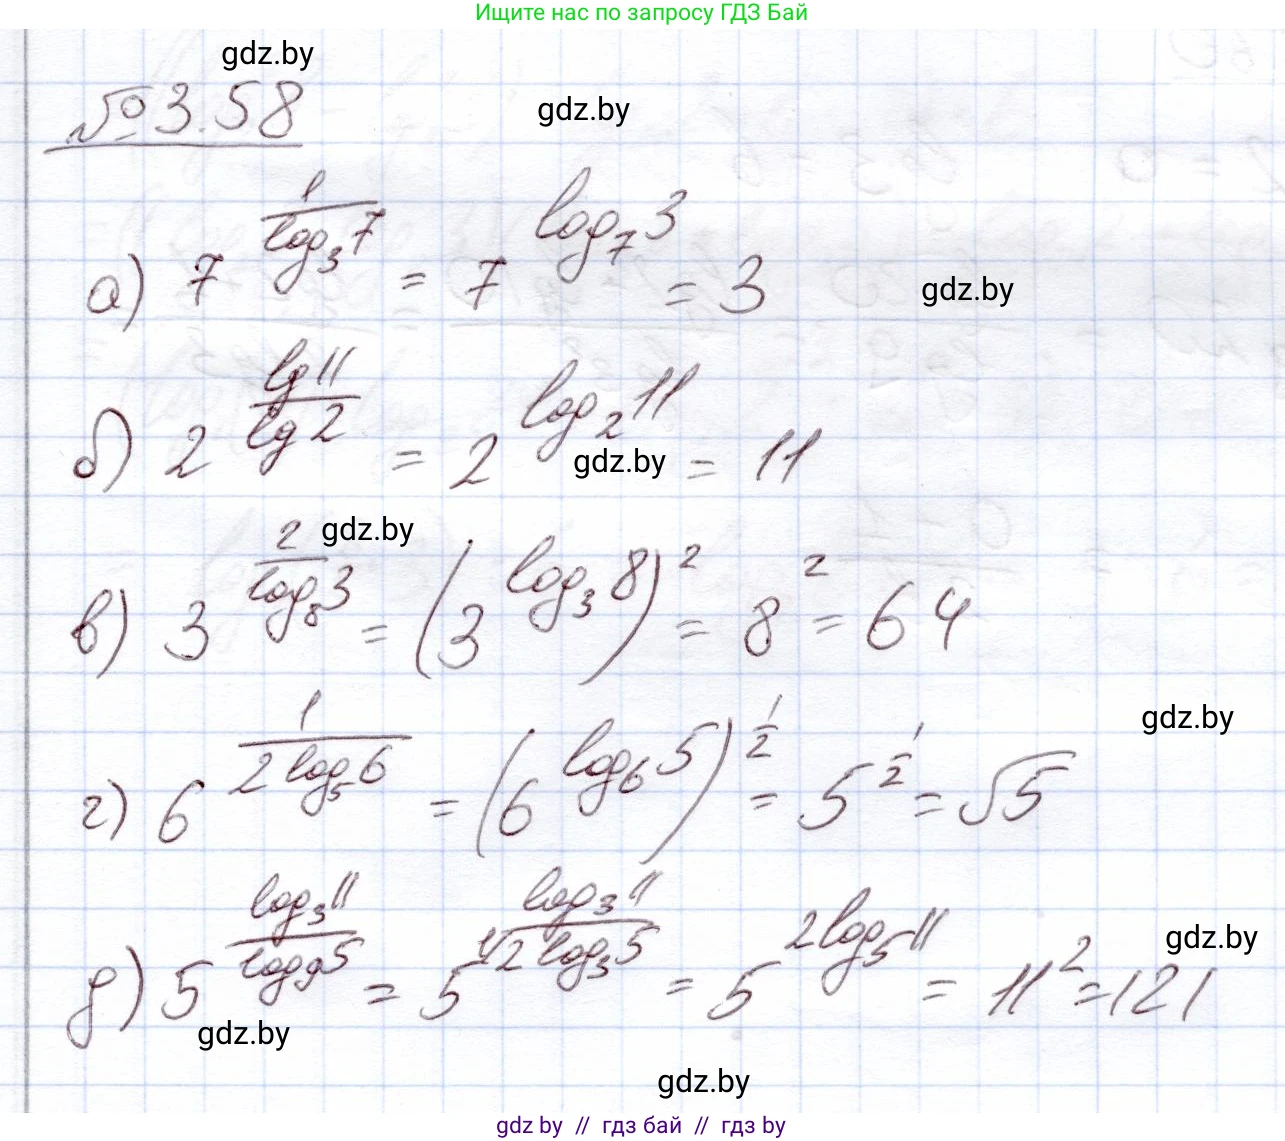 Ищите нас по запросу ГДЗ Бай
gdz.by
№ 3.58
gdz.by
а) 7^(1/log₃7) = 7^(log₇3) = 3
gdz.by
б) 2^(lg11/lg2) = 2^(log₂11) = 11
gdz.by
gdz.by
в) 3^(2/log₈3) = (3^(log₃8))² = 8² = 64
gdz.by
г) 6^(1/(2log₅6)) = (6^(log₆5))^(1/2) = 5^(1/2) = √5
д) 5^(log₃11/log₉5) = 5^(log₃11/(1/2 log₃5)) = 5^(2log₅11) = 11² = 121
gdz.by
gdz.by
gdz.by
gdz by // гдз бай // гдз by